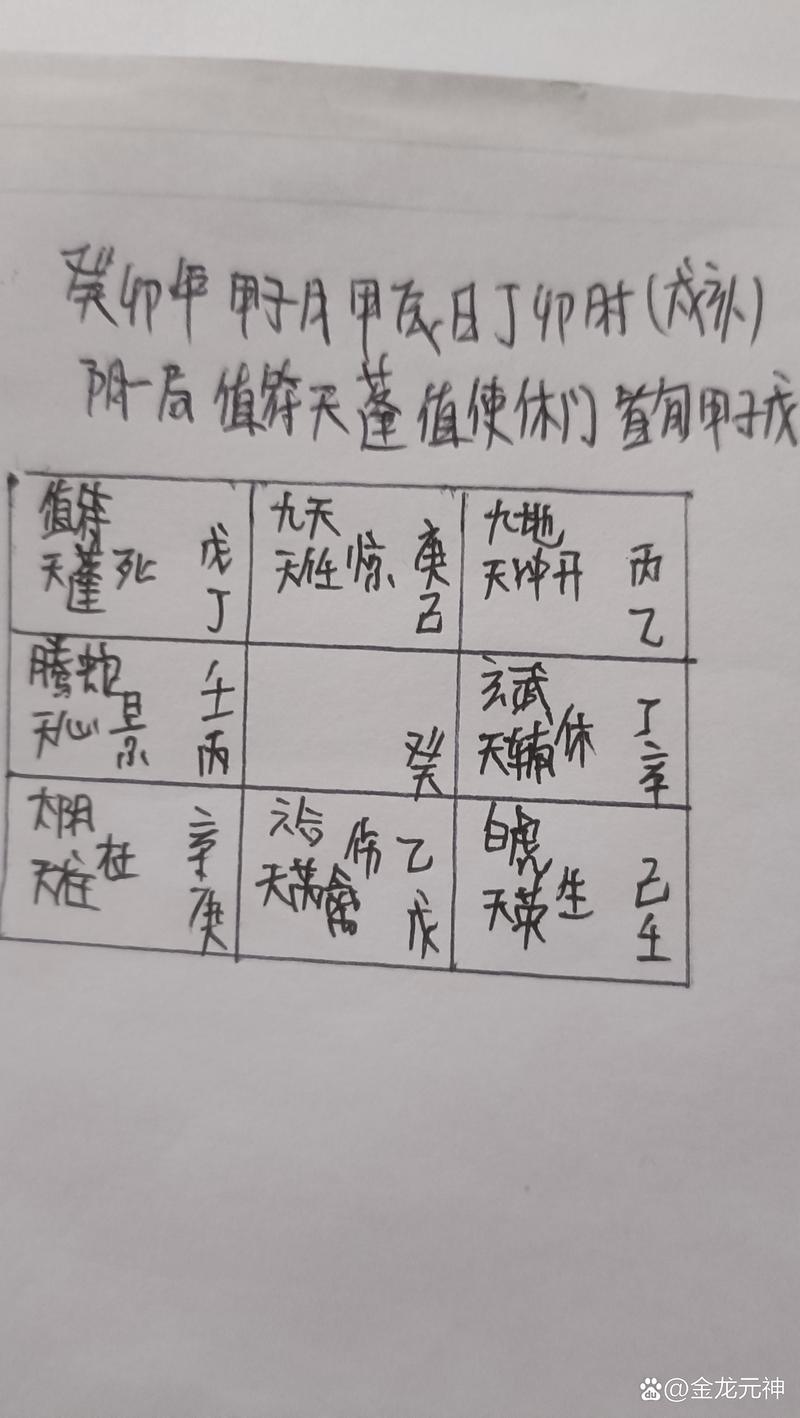 癸卯年 甲子月 甲辰日丁卯时(戌亥)
阴一局 值符天蓬 值使休门 首旬甲子戊
值符
天蓬 死 戊
丁
九天
天任 惊 庚
己
九地
天冲 开 丙
乙
腾蛇
天心 景 壬
丙
癸
玄武
天辅 休 丁
辛
太阴
天柱 杜 辛
庚
六合
天芮禽 伤 乙
戊
白虎
天英 生 己
壬
@金龙元神